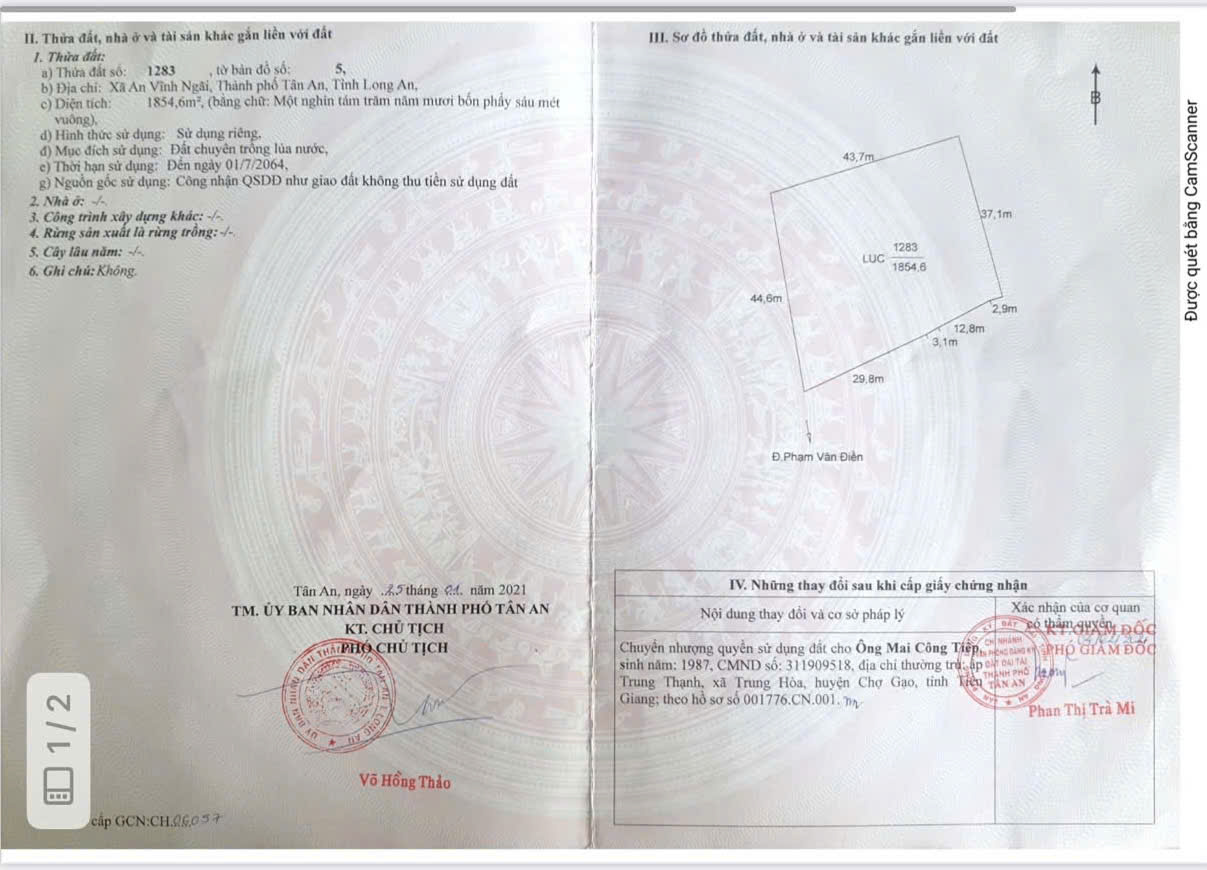 II. Thửa đất, nhà ở và tài sản khác gắn liền với đất
1. Thửa đất:
a) Thửa đất số: 1283 , tờ bản đồ số: 5,
b) Địa chỉ: Xã An Vĩnh Ngãi, Thành phố Tân An, Tỉnh Long An,
c) Diện tích: 1854,6m², (bằng chữ: Một nghìn tám trăm năm mươi bốn phẩy sáu mét
vuông),
d) Hình thức sử dụng: Sử dụng riêng,
đ) Mục đích sử dụng: Đất chuyên trồng lúa nước,
e) Thời hạn sử dụng: Đến ngày 01/7/2064,
g) Nguồn gốc sử dụng: Công nhận QSDĐ như giao đất không thu tiền sử dụng đất
2. Nhà ở: -/-.
3. Công trình xây dựng khác: -/-.
4. Rừng sản xuất là rừng trồng: -/-.
5. Cây lâu năm: -/-.
6. Ghi chú: Không.
Tân An, ngày 25 tháng 01 năm 2021
TM. ỦY BAN NHÂN DÂN THÀNH PHỐ TÂN AN
KT. CHỦ TỊCH
PHÓ CHỦ TỊCH
Võ Hồng Thảo
cấp GCN:CH.06057
1/2
III. Sơ đồ thửa đất, nhà ở và tài sản khác gắn liền với đất
B
43,7m
37,1m
LUC 1283
1854,6
44,6m
2,9m
12,8m
3,1m
29,8m
Đ.Phạm Văn Điền
IV. Những thay đổi sau khi cấp giấy chứng nhận
Nội dung thay đổi và cơ sở pháp lý
Xác nhận của cơ quan
có thẩm quyền
Chuyển nhượng quyền sử dụng đất cho Ông Mai Công Tiếp,
sinh năm: 1987, CMND số: 311909518, địa chỉ thường trú: ấp
Trung Thạnh, xã Trung Hòa, huyện Chợ Gạo, tỉnh Tiền
Giang; theo hồ sơ số 001776.CN.001.
KT. GIÁM ĐỐC
PHÓ GIÁM ĐỐC
CHI NHÁNH
VĂN PHÒNG ĐĂNG KÝ
ĐẤT ĐAI TẠI
THÀNH PHỐ
TÂN AN
Phan Thị Trà Mi
Được quét bằng CamScanner